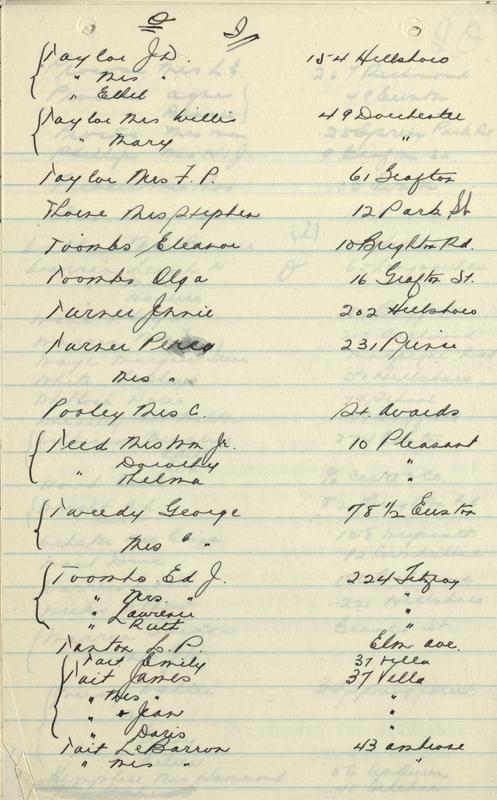 T
Taylor J.D. 154 Hillsboro
" Mrs "
" Ethel
Taylor Mrs Willis 49 Dorchester
" Mary "
Taylor Mrs F. P. 61 Grafton
Thorne Mrs Stephen 12 Park St
Toombs Eleanor 10 Brighton Rd.
Toombs Olga 16 Grafton St.
Turner Jennie 202 Hillsboro
Turner Percy 231 Prince
Mrs "
Pooley Mrs C. St. Avards
Teed Mrs Wm Jr. 10 Pleasant
" Dorothy "
" Thelma "
Tweedy George 78 1/2 Euston
Mrs " "
Toombs Ed J. 224 Fitzroy
" Mrs. " "
" Laurence "
" Ruth "
Tanton L. P. Elm ave.
Tait Emily 37 Villa
Tait James 37 Villa
" Mrs " "
" Jean "
" Doris "
Tait LeBarron 43 Ambrose
" Mrs " "